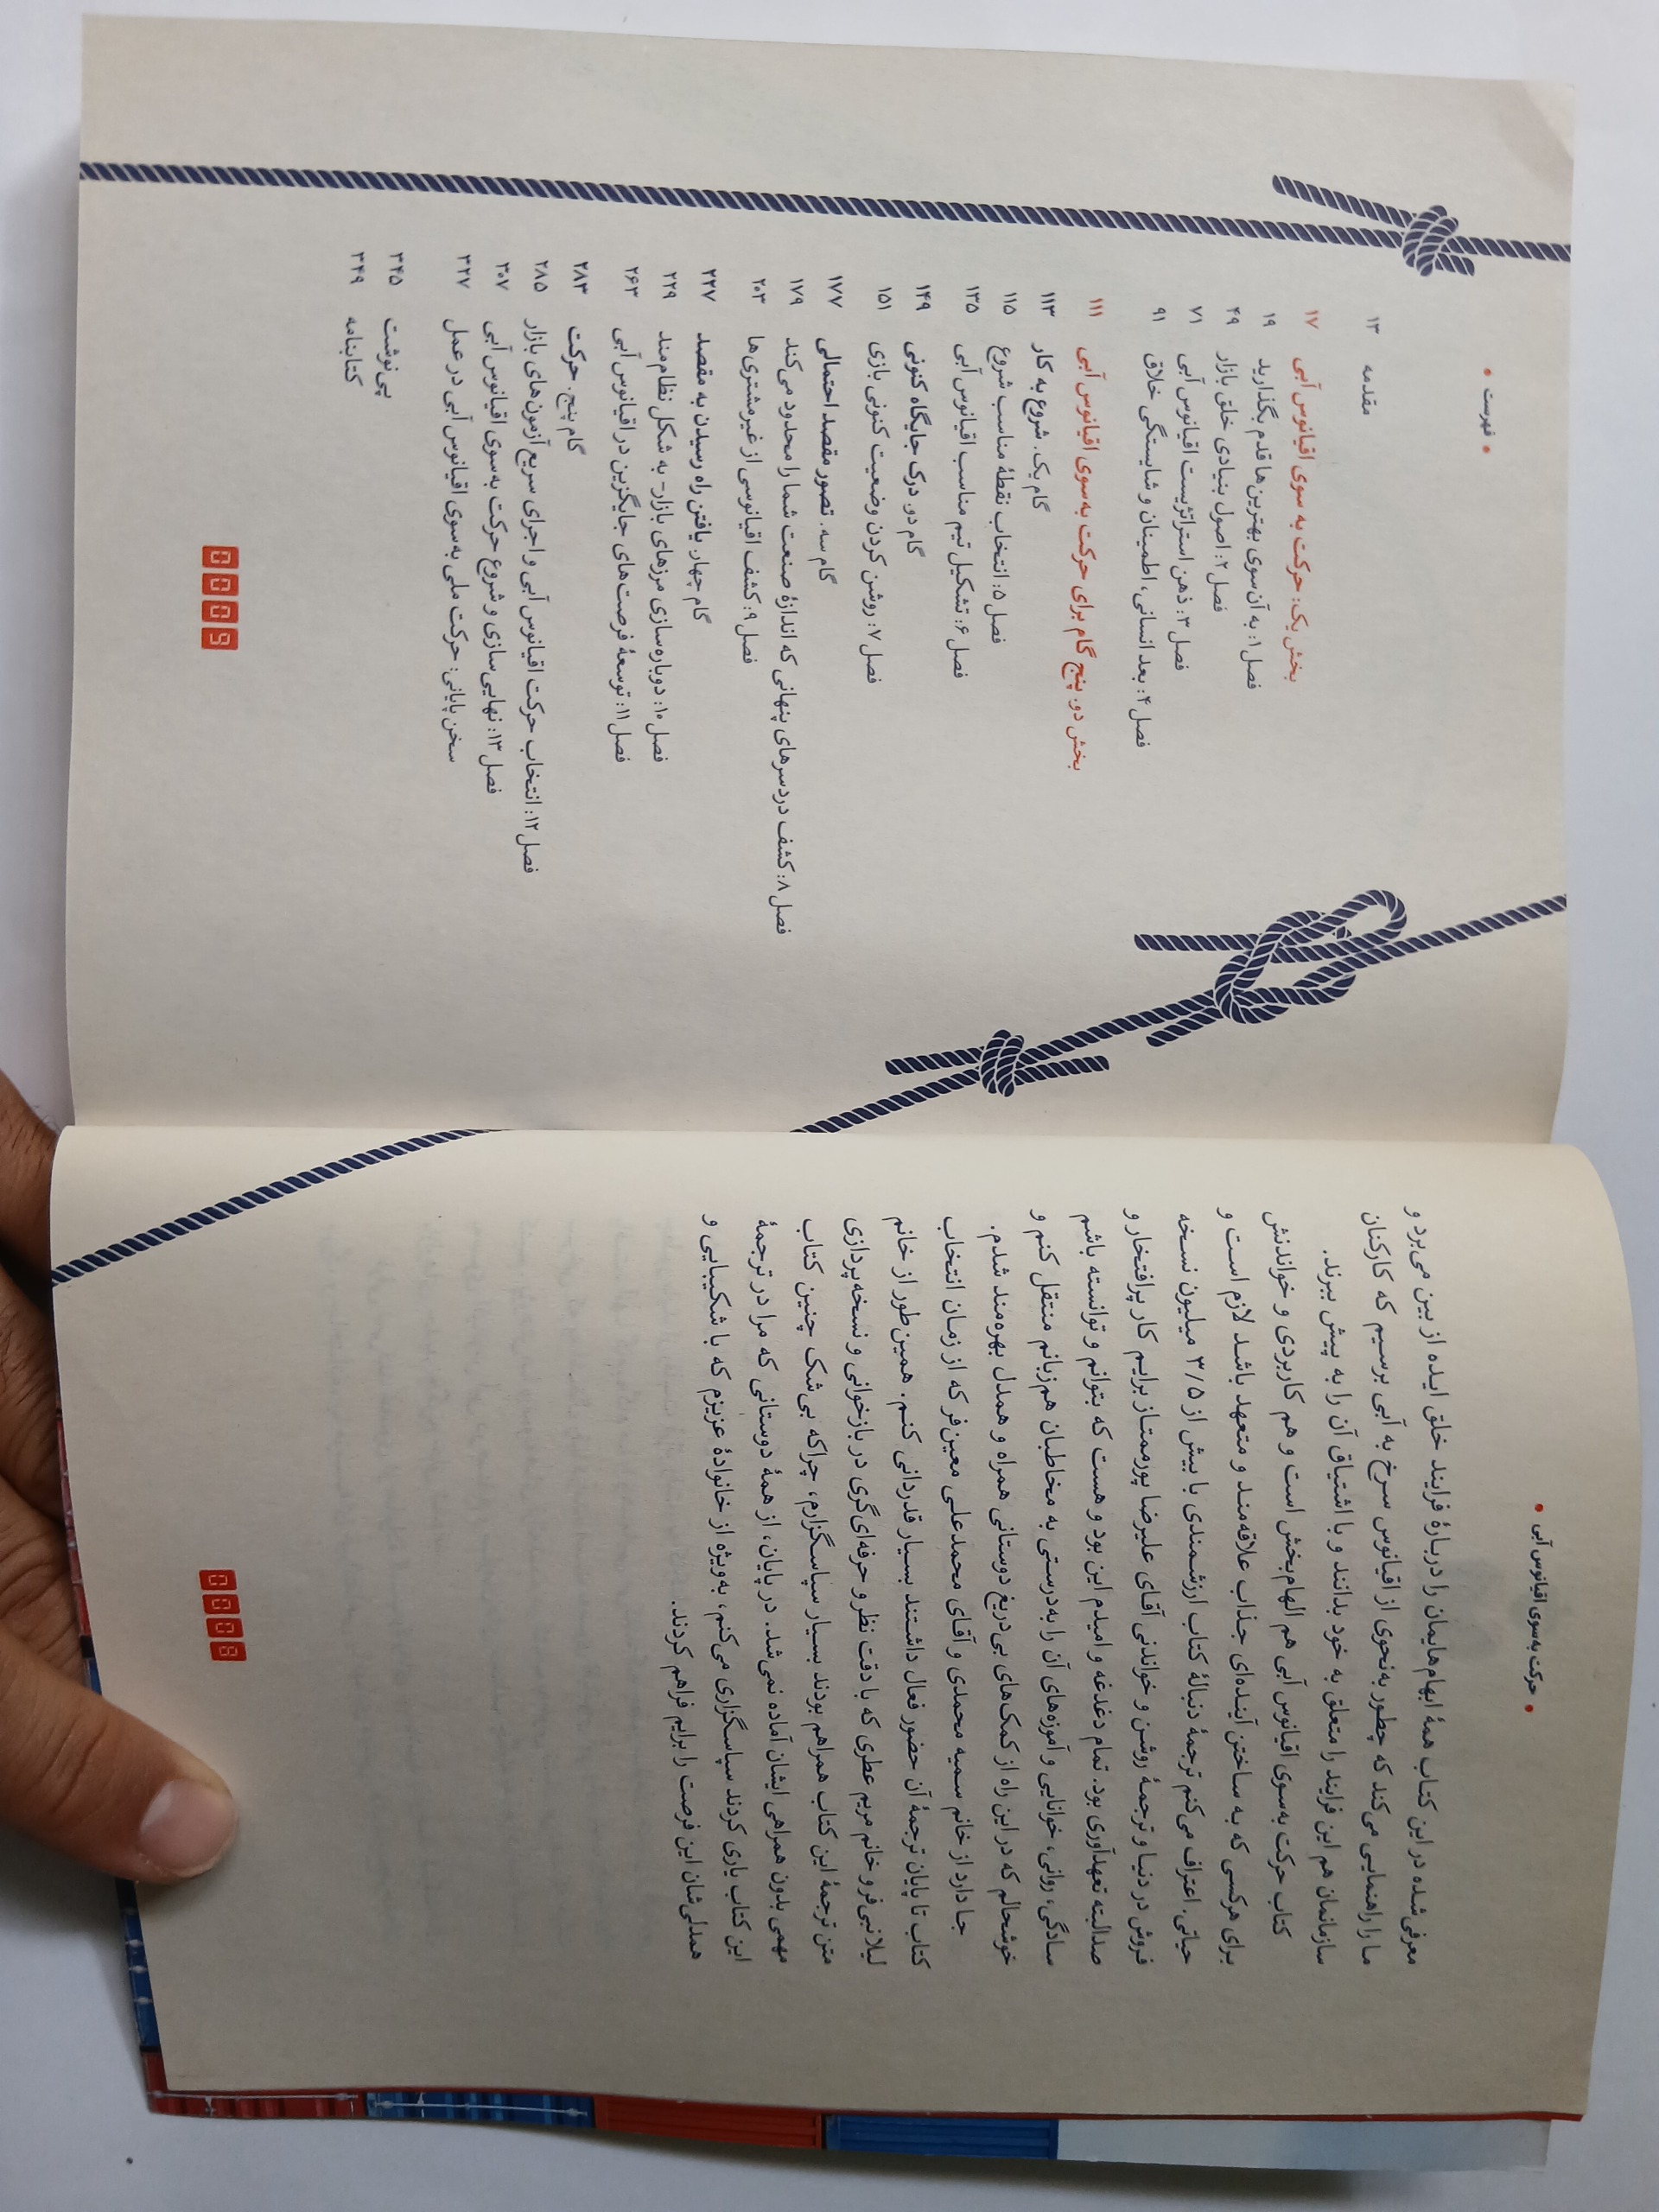 • حرکت به‌سوی اقیانوس آبی •
معرفی‌شده در این کتاب همهٔ ابهام‌هایمان را دربارهٔ فرایند خلق ایده از بین می‌برد و
ما را راهنمایی می‌کند که چطور به‌نحوی از اقیانوس سرخ به آبی برسیم که کارکنان
سازمانمان هم این فرایند را متعلق به خود بدانند و با اشتیاق آن را به پیش ببرند.
کتاب حرکت به‌سوی اقیانوس آبی هم الهام‌بخش است و هم کاربردی و خواندنش
برای هرکسی که به ساختن آینده‌ای جذاب علاقه‌مند و متعهد باشد لازم است و
حیاتی. اعتراف می‌کنم ترجمهٔ دنبالهٔ کتاب ارزشمندی با بیش از ۳/۵ میلیون نسخه
فروش در دنیا و ترجمهٔ روشن و خواندنی آقای علیرضا پورممتاز برایم کار پرافتخار و
صدالبته تعهدآوری بود. تمام دغدغه و امیدم این بود و هست که بتوانم و توانسته باشم
سادگی، روانی، خوانایی و آموزه‌های آن را به‌درستی به مخاطبان هم‌زبانم منتقل کنم و
خوشحالم که در این راه از کمک‌های بی‌دریغ دوستانی همراه و همدل بهره‌مند شدم.
جا دارد از خانم سمیه محمدی و آقای محمدعلی معین‌فر که از زمان انتخاب
کتاب تا پایان ترجمهٔ آن حضور فعال داشتند بسیار قدردانی کنم. همین‌طور از خانم
لیلا نبی‌فر و خانم مریم عطری که با دقت نظر و حرفه‌ای‌گری در بازخوانی و نسخه‌پردازی
متن ترجمهٔ این کتاب همراهم بودند بسیار سپاسگزارم، چراکه بی‌شک چنین کتاب
مهمی بدون همراهی ایشان آماده نمی‌شد. در پایان، از همهٔ دوستانی که مرا در ترجمهٔ
این کتاب یاری کردند سپاسگزاری می‌کنم، به‌ویژه از خانوادهٔ عزیزم که با شکیبایی و
همدلی‌شان این فرصت را برایم فراهم کردند.
0008
• فهرست •
مقدمه ۱۳
بخش یک: حرکت به سوی اقیانوس آبی ۱۷
فصل ۱: به آن‌سوی بهترین‌ها قدم بگذارید ۱۹
فصل ۲: اصول بنیادی خلق بازار ۴۹
فصل ۳: ذهن استراتژیست اقیانوس آبی ۷۱
فصل ۴: بعد انسانی، اطمینان و شایستگی خلاق ۹۱
بخش دو. پنج گام برای حرکت به‌سوی اقیانوس آبی ۱۱۱
گام یک. شروع به کار ۱۱۳
فصل ۵: انتخاب نقطهٔ مناسب شروع ۱۱۵
فصل ۶: تشکیل تیم مناسب اقیانوس آبی ۱۳۵
گام دو. درک جایگاه کنونی ۱۴۹
فصل ۷: روشن کردن وضعیت کنونی بازی ۱۵۱
گام سه. تصور مقصد احتمالی ۱۷۷
فصل ۸: کشف دردسرهای پنهانی که اندازهٔ صنعت شما را محدود می‌کند ۱۷۹
فصل ۹: کشف اقیانوسی از غیرمشتری‌ها ۲۰۳
گام چهار. یافتن راه رسیدن به مقصد ۲۲۷
فصل ۱۰: دوباره‌سازی مرزهای بازار- به شکل نظام‌مند ۲۲۹
فصل ۱۱: توسعهٔ فرصت‌های جایگزین در اقیانوس آبی ۲۶۳
گام پنج. حرکت ۲۸۳
فصل ۱۲: انتخاب حرکت اقیانوس آبی و اجرای سریع آزمون‌های بازار ۲۸۵
فصل ۱۳: نهایی‌سازی و شروع حرکت به‌سوی اقیانوس آبی ۳۰۷
سخن پایانی: حرکت ملی به‌سوی اقیانوس آبی در عمل ۳۲۷
پی‌نوشت ۳۴۵
کتابنامه ۳۴۹
0009